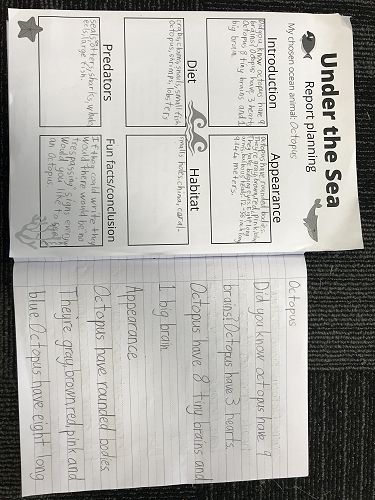 Under the Sea
Report planning
My chosen ocean animal: Octopus
Introduction
Did you know octopus have 9
brains? Octopus have 3 hearts.
Octopus 8 tiny brains and 1
big brain.
Appearance
Octopus have rounded bodies.
They're gray, brown, red, pink, blue
Diet
crabs, clams, snails, small fish,
octopus, shrimps, lobsters
Habitat
small holes, china, coral.
Predators
seals, otters, sharks, whales,
eels, large fish.
Fun facts/conclusion
If they could write they
would there would be no
trespassing signs every
Would you like to
an octopus.
Octopus
Did you know octopus have 9
brains? Octopus have 3 hearts.
Octopus have 8 tiny brains and
1 big brain.
Appearance
Octopus have rounded bodies.
They're gray, brown, red, pink and
blue. Octopus have eight long